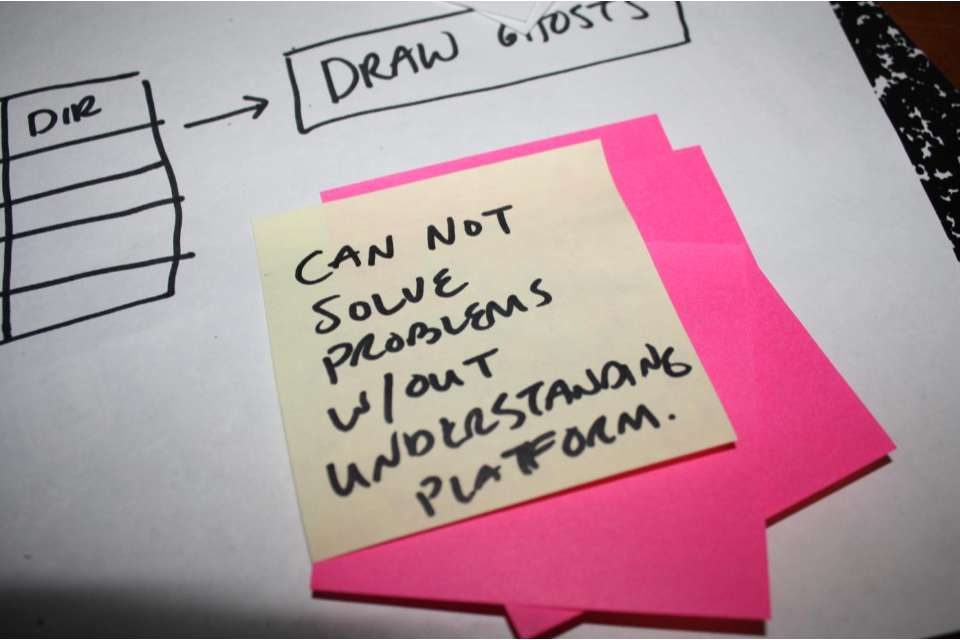 DIR
DRAW GHOSTS
CAN NOT
SOLVE
PROBLEMS
W/OUT
UNDERSTANDING
PLATFORM.